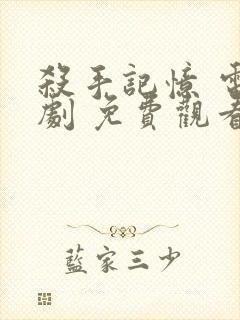 殺手記憶 電
劇 免費觀看
藍家三少